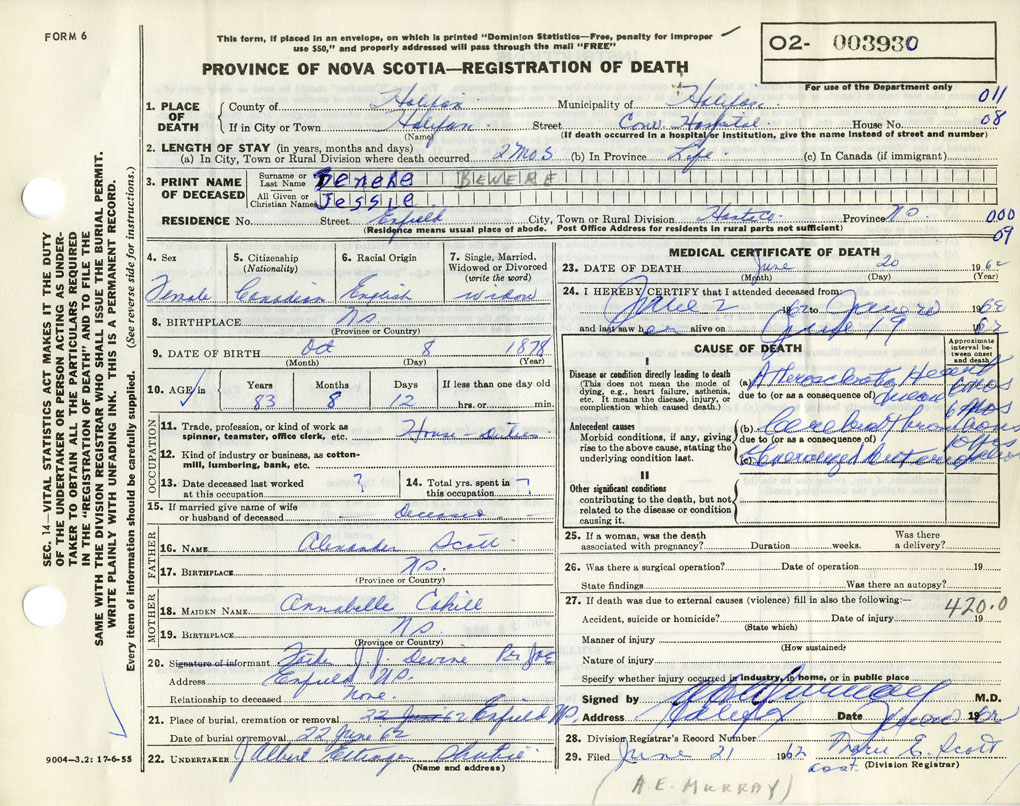 FORM 6
This form, if placed in an envelope, on which is printed "Dominion Statistics—Free, penalty for improper
use $50," and properly addressed will pass through the mail "FREE"
O2- 003930
PROVINCE OF NOVA SCOTIA—REGISTRATION OF DEATH
For use of the Department only
011
08
1. PLACE OF DEATH
County of Halifax Municipality of Halifax
If in City or Town Halifax Street Conv. Hospital House No.
(Name) (If death occurred in a hospital or institution, give the name instead of street and number)
2. LENGTH OF STAY (in years, months and days)
(a) In City, Town or Rural Division where death occurred 2 mos (b) In Province Life (c) In Canada (if immigrant)
3. PRINT NAME OF DECEASED
Surname or Last Name BEWERE
All Given or Christian Names Jessie
RESIDENCE No. Street Enfield City, Town or Rural Division Hants Co. Province NS
(Residence means usual place of abode. Post Office Address for residents in rural parts not sufficient)
000
09
4. Sex Female
5. Citizenship (Nationality) Canadian
6. Racial Origin English
7. Single, Married, Widowed or Divorced (write the word) widow
8. BIRTHPLACE NS
(Province or Country)
9. DATE OF BIRTH Oct 8 1878
(Month) (Day) (Year)
10. AGE Years Months Days If less than one day old
83 8 12 hrs. or min.
OCCUPATION
11. Trade, profession, or kind of work as spinner, teamster, office clerk, etc. House duties
12. Kind of industry or business, as cotton-mill, lumbering, bank, etc.
13. Date deceased last worked at this occupation ?
14. Total yrs. spent in this occupation ?
15. If married give name of wife or husband of deceased Deceased
FATHER
16. NAME Alexander Scott
17. BIRTHPLACE NS.
(Province or Country)
MOTHER
18. MAIDEN NAME Annabelle Cahill
19. BIRTHPLACE NS
(Province or Country)
20. Signature of informant J. J. Devine Per
Address Enfield NS.
Relationship to deceased None.
21. Place of burial, cremation or removal 22 June 62 Enfield NS,
Date of burial or removal 22 June 62
22. UNDERTAKER J Albert Ettinger
(Name and address)
MEDICAL CERTIFICATE OF DEATH
23. DATE OF DEATH June 20 1962
(Month) (Day) (Year)
24. I HEREBY CERTIFY that I attended deceased from:
June 2 1962 to June 20 1962
and last saw her alive on June 19 1962
CAUSE OF DEATH
Approximate interval between onset and death
I
Disease or condition directly leading to death
(This does not mean the mode of dying, e.g., heart failure, asthenia, etc. It means the disease, injury, or complication which caused death.)
(a) Heart
due to (or as a consequence of) 6 mos
Antecedent causes
Morbid conditions, if any, giving rise to the above cause, stating the underlying condition last.
(b) Cerebral Thrombosis 6 mos
due to (or as a consequence of)
(c) Generalized
II
Other significant conditions
contributing to the death, but not related to the disease or condition causing it.
25. If a woman, was the death associated with pregnancy? Duration weeks. Was there a delivery?
26. Was there a surgical operation? Date of operation 19
State findings Was there an autopsy?
27. If death was due to external causes (violence) fill in also the following:— 420.0
Accident, suicide or homicide? Date of injury 19
(State which)
Manner of injury
(How sustained)
Nature of injury
Specify whether injury occurred in industry, in home, or in public place
Signed by M.D.
Address Halifax Date 1962
28. Division Registrar's Record Number
29. Filed June 21 1962 Marie E. Scott
asst. (Division Registrar)
(A.E. MURRAY)
SEC. 14—VITAL STATISTICS ACT MAKES IT THE DUTY
OF THE UNDERTAKER OR PERSON ACTING AS UNDER-
TAKER TO OBTAIN ALL THE PARTICULARS REQUIRED
IN THE "REGISTRATION OF DEATH" AND TO FILE THE
SAME WITH THE DIVISION REGISTRAR WHO SHALL ISSUE THE BURIAL PERMIT.
WRITE PLAINLY WITH UNFADING INK. THIS IS A PERMANENT RECORD.
Every item of information should be carefully supplied. (See reverse side for instructions.)
9004—3.2: 17-6-55